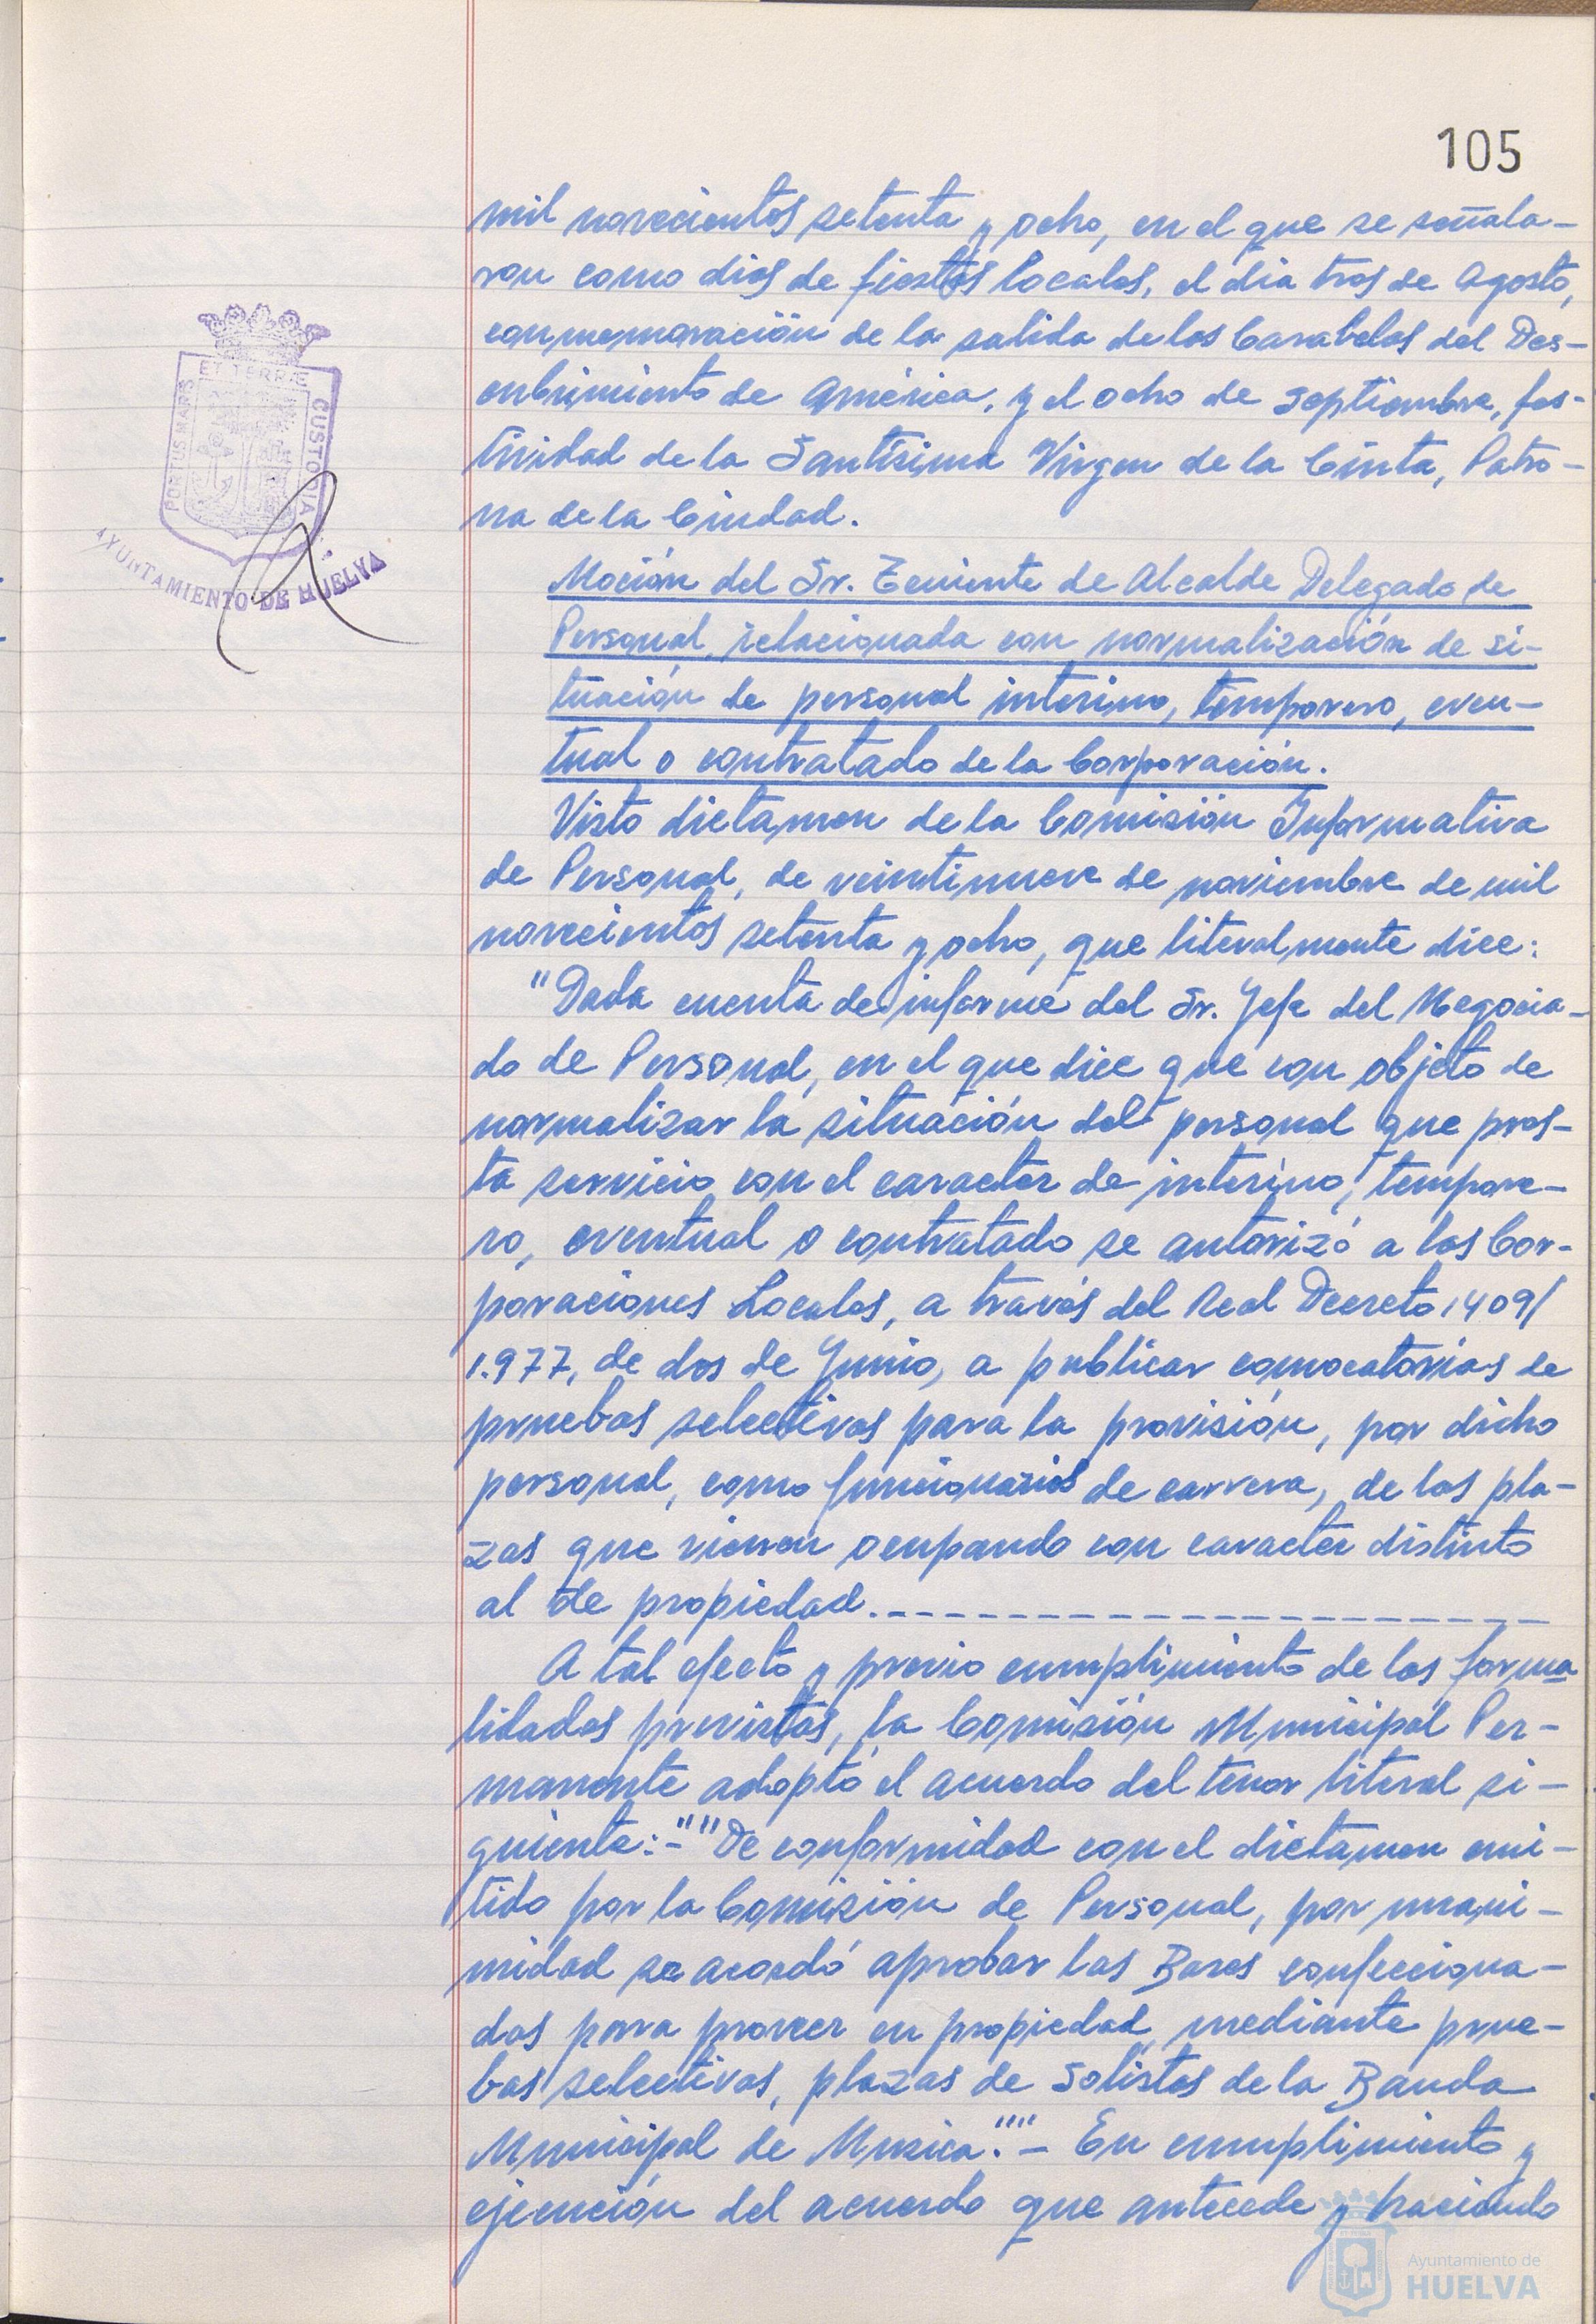 105
mil novecientos setenta y ocho, en el que se señala-
ron como dias de fiestas locales, el dia tres de Agosto,
conmemoración de la salida de las Carabelas del Des-
cubrimiento de América, y el ocho de Septiembre, fes-
tividad de la Santísima Virgen de la Cinta, Patro-
na de la Ciudad.
Moción del Sr. Teniente de Alcalde Delegado de
Personal, relacionada con normalización de si-
tuación de personal interino, temporero, even-
tual o contratado de la Corporación.
Visto dictamen de la Comisión Informativa
de Personal, de veintinueve de noviembre de mil
novecientos setenta y ocho, que literalmente dice:
"Dada cuenta de informe del Sr. Jefe del Negocia-
do de Personal, en el que dice que con objeto de
normalizar la situación del personal que pres-
ta servicio con el caracter de interino, tempore-
ro, eventual o contratado se autorizó a las Cor-
poraciones Locales, a través del Real Decreto 1409/
1.977, de dos de Junio, a publicar convocatorias de
pruebas selectivas para la provisión, por dicho
personal, como funcionarios de carrera, de las pla-
zas que vienen ocupando con caracter distinto
al de propiedad.
A tal efecto y previo cumplimiento de las forma
lidades previstas, la Comisión Municipal Per-
manente adoptó el acuerdo del tenor literal si-
guiente:-""De conformidad con el dictamen emi-
tido por la Comisión de Personal, por unani-
midad se acordó aprobar las Bases confecciona-
das para proveer en propiedad, mediante prue-
bas selectivas, plazas de Solistas de la Banda
Municipal de Musica.""- En cumplimiento y
ejecución del acuerdo que antecede y haciendo
ET TERRÆ
PORTUS MARIS
CUSTODIA
AYUNTAMIENTO DE HUELVA
Ayuntamiento de
HUELVA